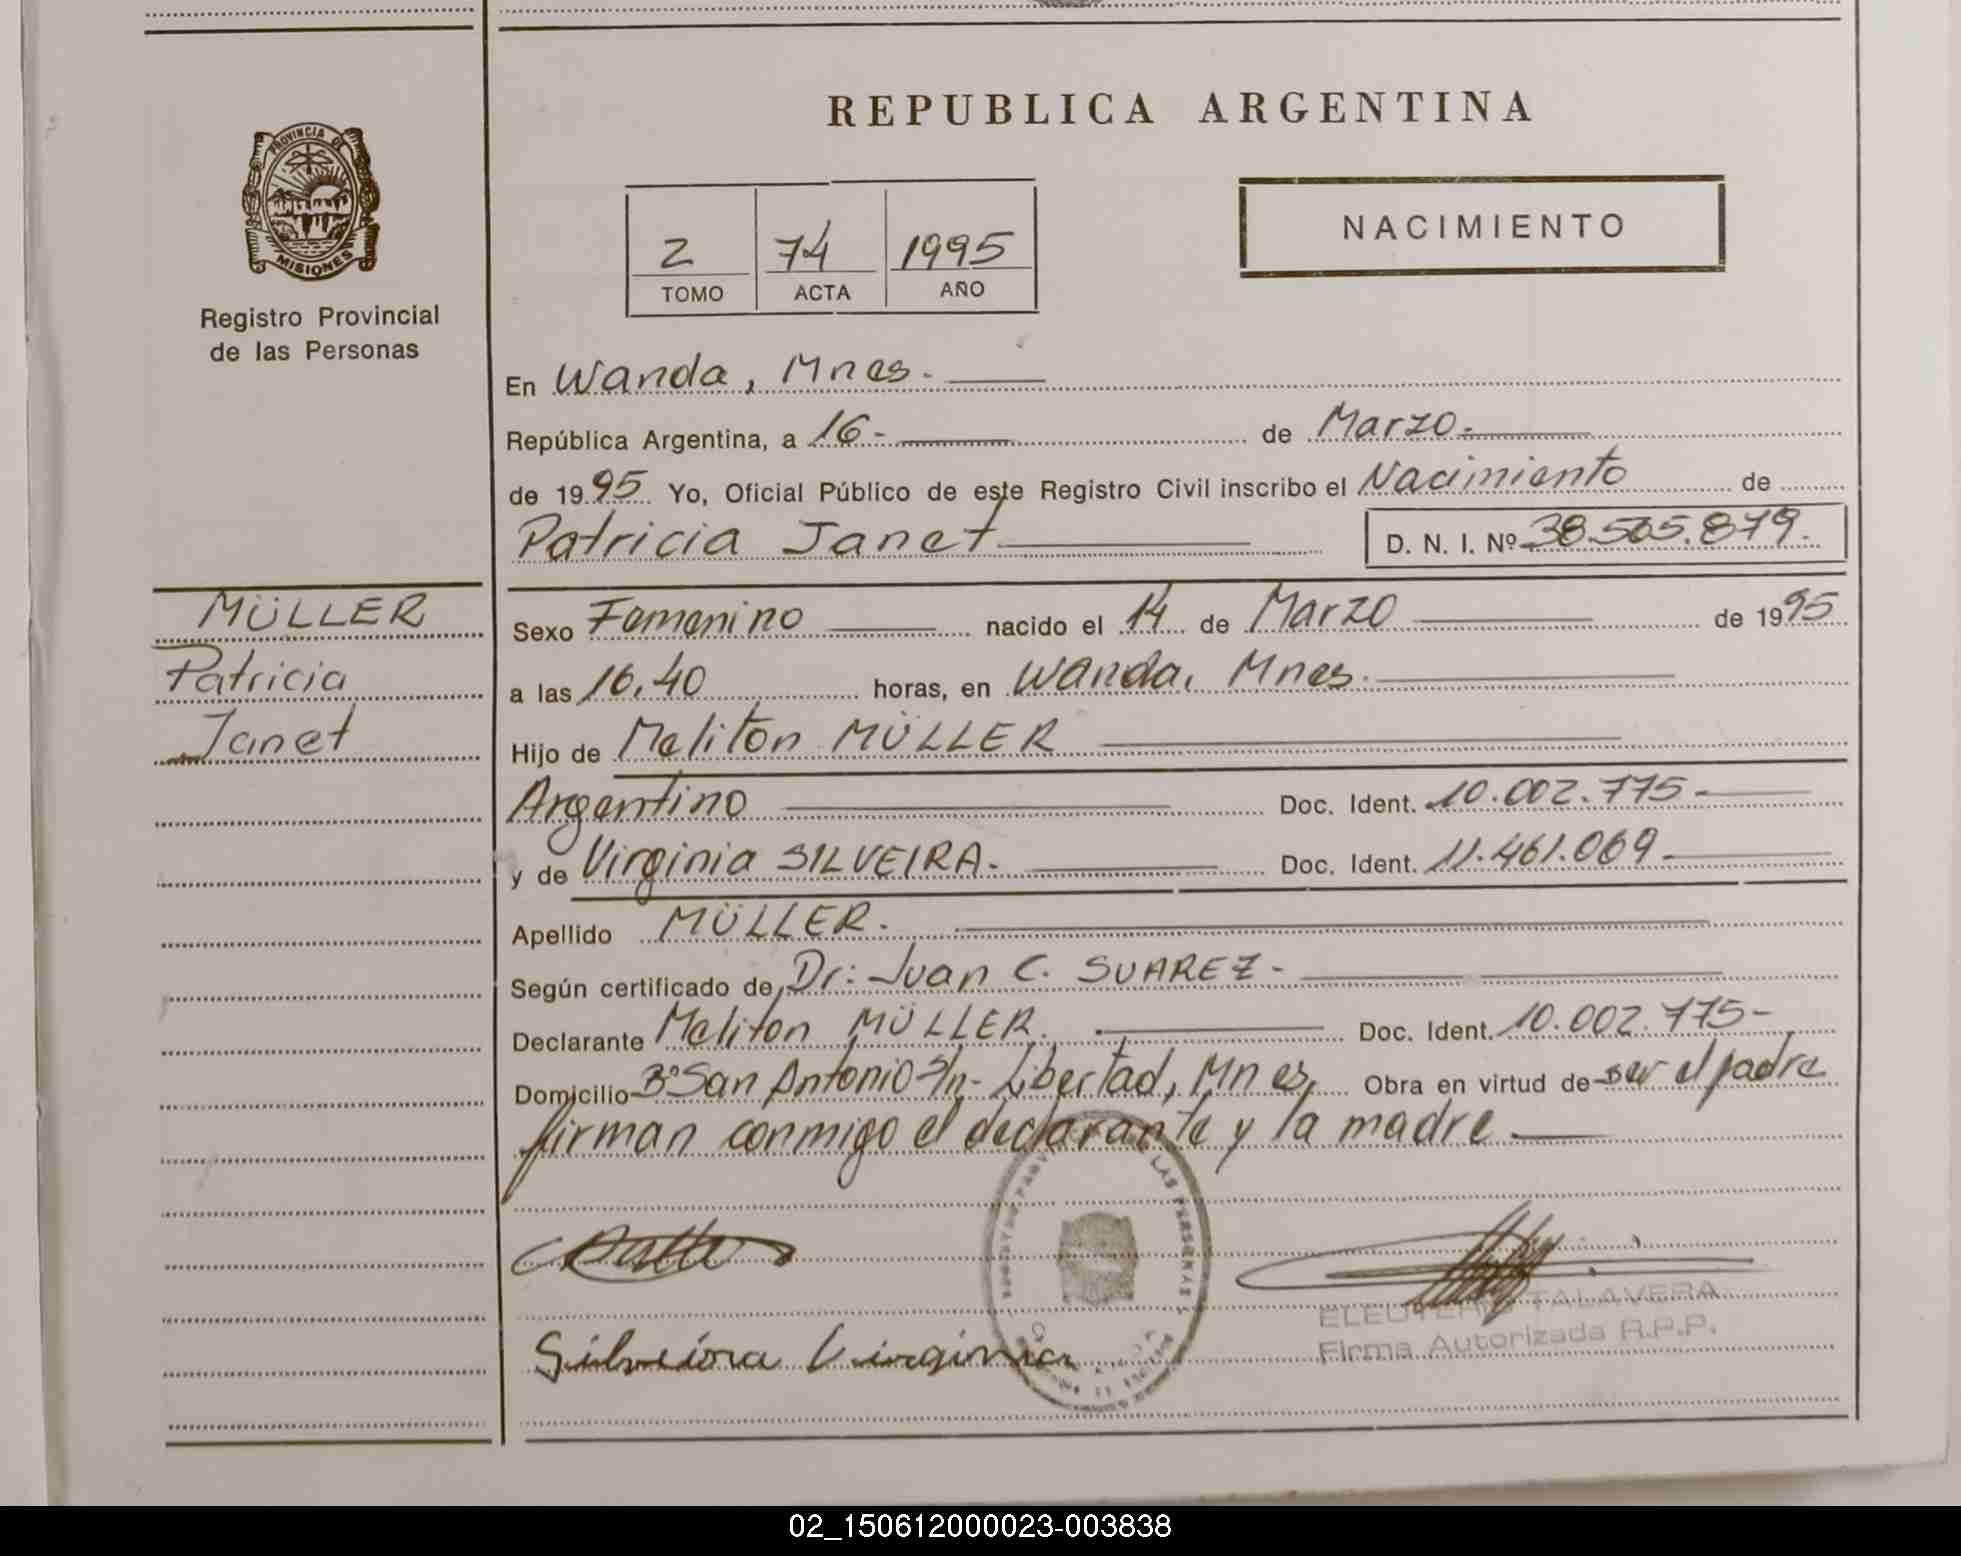 REPUBLICA ARGENTINA
PROVINCIA DE
MISIONES
Registro Provincial
de las Personas
2 74 1995
TOMO ACTA AÑO
NACIMIENTO
En Wanda, Mnes.
República Argentina, a 16- de Marzo.
de 1995 Yo, Oficial Público de este Registro Civil inscribo el Nacimiento de
Patricia Janet D. N. I. Nº 38.565.879.
MÜLLER
Patricia
Janet
Sexo Femenino nacido el 14 de Marzo de 1995
a las 16,40 horas, en Wanda, Mnes.
Hijo de Meliton MÜLLER
Argentino Doc. Ident. 10.002.775-
y de Virginia SILVEIRA- Doc. Ident. 11.461.069-
Apellido MÜLLER.
Según certificado de Dr: Juan C. SUAREZ-
Declarante Meliton MÜLLER. Doc. Ident. 10.002.775-
Domicilio Bº San Antonio S/n- Libertad, Mnes, Obra en virtud de ser el padre
firman conmigo el declarante y la madre
Silveira Virginia
ELEUTERIO TALAVERA
Firma Autorizada R.P.P.
02_150612000023-003838